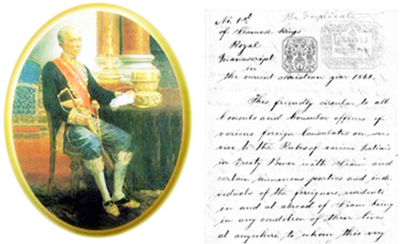 No. 1st The Duplicate
of Siamese Kings
Royal
Manuscript
in
the current christian year
This friendly circular to all
Consuls and Consular officers of
various foreign Consulates on ser-
vice to the Rulers of various Nations
in treaty Power with Siam and
certain numerous parties and indi-
viduals of the foreigners, residents
in and at abroad of Siam being
in any condition of their lives
at anywhere to whom this very